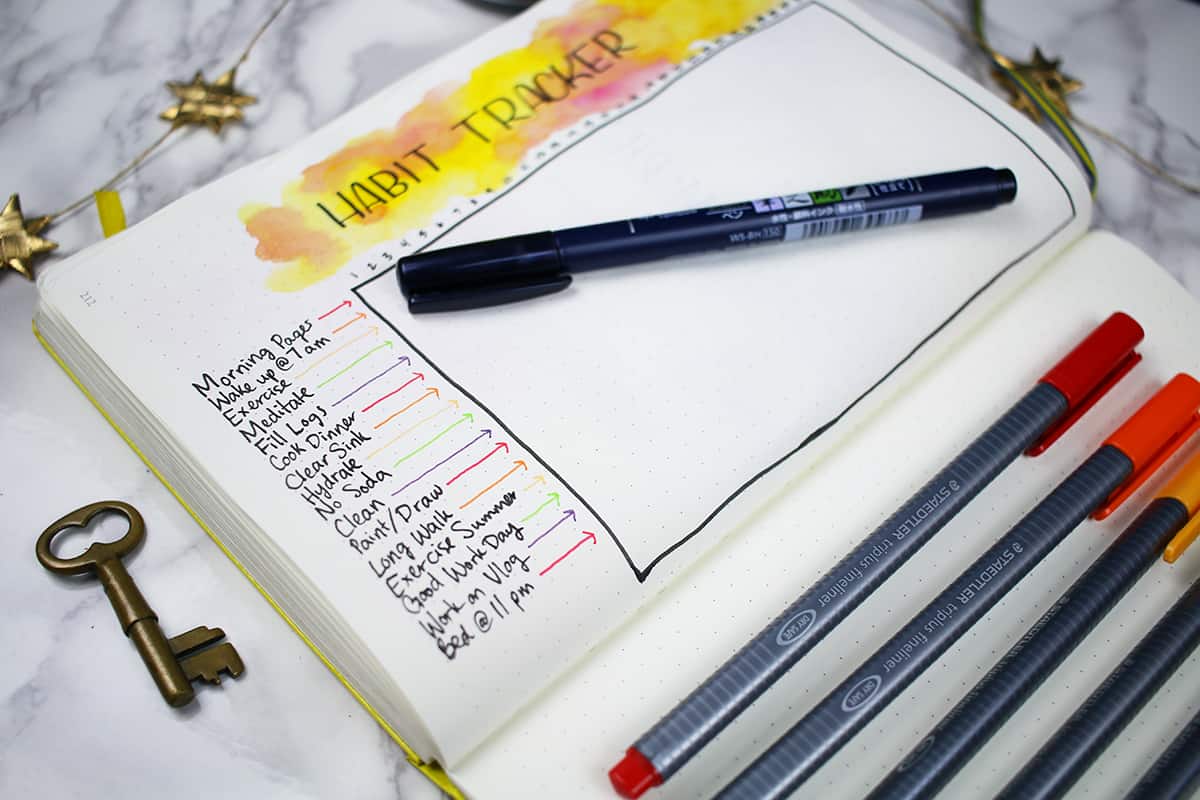 HABIT TRACKER
1 2 3 4 5 6 7
212
Morning Pages
Wake up @ 7 am
Exercise
Meditate
Fill Logs
Cook Dinner
Clear Sink
Hydrate
No Soda
Clean
Paint/Draw
Long Walk
Exercise Summer
Good Work Day
Work on Vlog
Bed @ 11 pm
WS-BH150
STAEDTLER triplus fineliner
DRY SAFE
STAEDTLER triplus fineliner
DRY SAFE